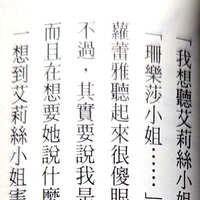 「我想聽艾莉絲小姐
「珊樂莎小姐……」
蘿蕾雅聽起來很傻眼
不過，其實要說我是
而且在想要她說什麼
一想到艾莉絲小姐害